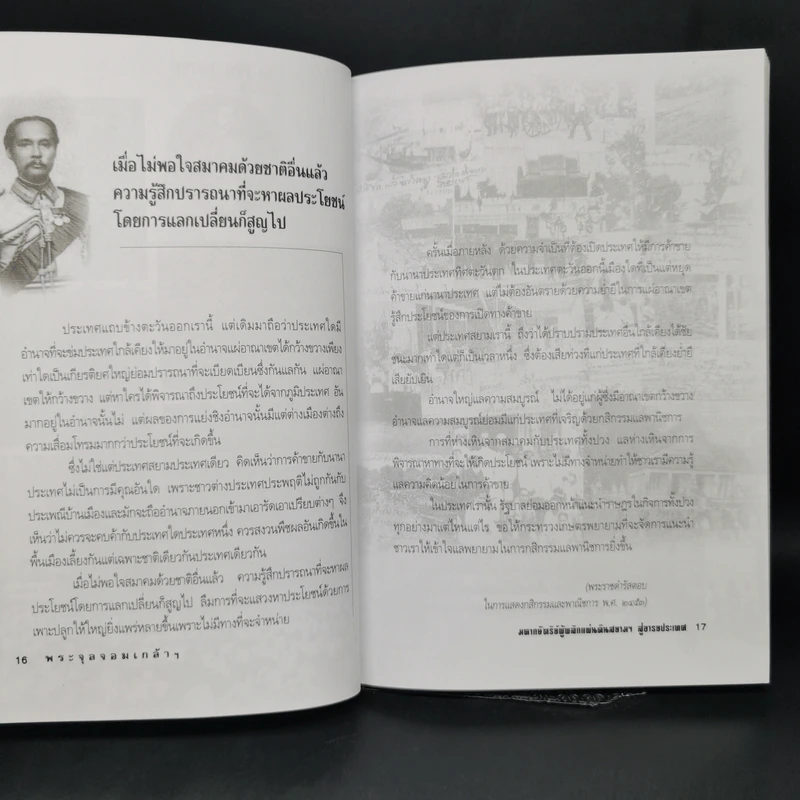 เมื่อไม่พอใจสมาคมด้วยชาติอื่นแล้ว
ความรู้สึกปรารถนาที่จะหาผลประโยชน์
โดยการแลกเปลี่ยนก็สูญไป
ประเทศแถบข้างตะวันออกเรานี้ แต่เดิมมาถือว่าประเทศใดมี
อำนาจที่จะข่มประเทศใกล้เคียงให้มาอยู่ในอำนาจแผ่อาณาเขตได้กว้างขวางเพียง
เท่าใดเป็นเกียรติยศใหญ่ย่อมปรารถนาที่จะเบียดเบียนซึ่งกันแลกัน แผ่อาณา
เขตให้กว้างขวาง แต่หาใคร่ได้พิจารณาถึงประโยชน์ที่จะได้จากภูมิประเทศ อัน
มากอยู่ในอำนาจนั้นไม่ แต่ผลของการแย่งชิงอำนาจนั้นมีแต่ต่างเมืองต่างถึง
ความเสื่อมโทรมมากกว่าประโยชน์ที่จะเกิดขึ้น
ซึ่งไม่ใช่แต่ประเทศสยามประเทศเดียว คิดเห็นว่าการค้าขายกับนานา
ประเทศไม่เป็นการมีคุณอันใด เพราะชาวต่างประเทศประพฤติไม่ถูกกันกับ
ประเพณีบ้านเมืองและมักจะถืออำนาจภายนอกเข้ามาเอารัดเอาเปรียบต่างๆ จึง
เห็นว่าไม่ควรจะคบค้ากับประเทศใดประเทศหนึ่ง ควรสงวนพืชผลอันเกิดขึ้นใน
พื้นเมืองเลี้ยงกันแต่เฉพาะชาติเดียวกันประเทศเดียวกัน
เมื่อไม่พอใจสมาคมด้วยชาติอื่นแล้ว ความรู้สึกปรารถนาที่จะหาผล
ประโยชน์โดยการแลกเปลี่ยนก็สูญไป ลืมการที่จะแสวงหาประโยชน์ด้วยการ
เพาะปลูกให้ใหญ่ยิ่งแพร่หลายขึ้นเพราะไม่มีทางที่จะจำหน่าย
16 พระจุลจอมเกล้าฯ
ครั้นเมื่อภายหลัง ด้วยความจำเป็นที่ต้องเปิดประเทศให้มีการค้าขาย
กับนานาประเทศทิศตะวันตก ในประเทศตะวันออกนี้เมืองใดที่เป็นแต่หยุด
ค้าขายแก่นานาประเทศ แต่ไม่ต้องอันตรายด้วยความย่ำยีในการแผ่อาณาเขต
รู้สึกประโยชน์ของการเปิดทางค้าขาย
แต่ประเทศสยามเรานี้ ถึงว่าได้ปราบปรามประเทศอื่นใกล้เคียงได้ชัย
ชนะมากเท่าใดแต่ก็เป็นเวลาหนึ่ง ซึ่งต้องเสียท่วงทีแก่ประเทศที่ใกล้เคียงย่ำยี
เสียยับเยิน
อำนาจใหญ่แลความสมบูรณ์ ไม่ได้อยู่แก่ผู้ซึ่งมีอาณาเขตกว้างขวาง
อำนาจแลความสมบูรณ์ย่อมมีแก่ประเทศที่เจริญด้วยกสิกรรมแลพานิชการ
การที่ห่างเหินจากสมาคมกับประเทศทั้งปวง แลห่างเหินจากการ
พิจารณาหาทางที่จะให้เกิดประโยชน์ เพราะไม่มีทางจำหน่ายทำให้ชาวเรามีความรู้
แลความคิดน้อยในการค้าขาย
ในประเทศเรานั้น รัฐบาลย่อมออกหน้าแนะนำราษฎรในกิจการทั้งปวง
ทุกอย่างมาแต่ไหนแต่ไร ขอให้กระทรวงเกษตรพยายามที่จะจัดการแนะนำ
ชาวเราให้เข้าใจแลพยายามในการกสิกรรมแลพานิชการยิ่งขึ้น
(พระราชดำรัสตอบ
ในการแสดงกสิกรรมและพาณิชการ พ.ศ. ๒๔๕๓)
มหากษัตริย์ผู้พลิกแผ่นดินสยามฯ สู่อารยประเทศ 17